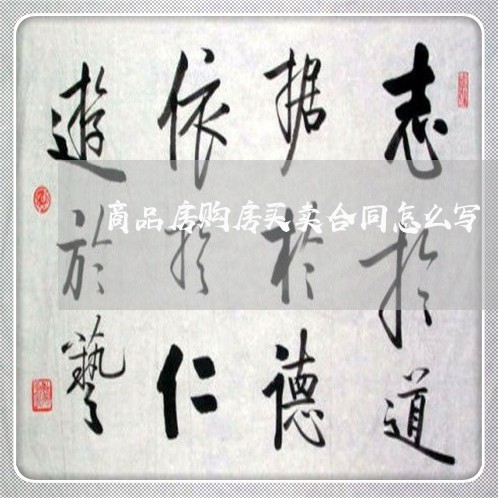 志於道
据於德
依於仁
遊於藝
商品房购房买卖合同怎么写